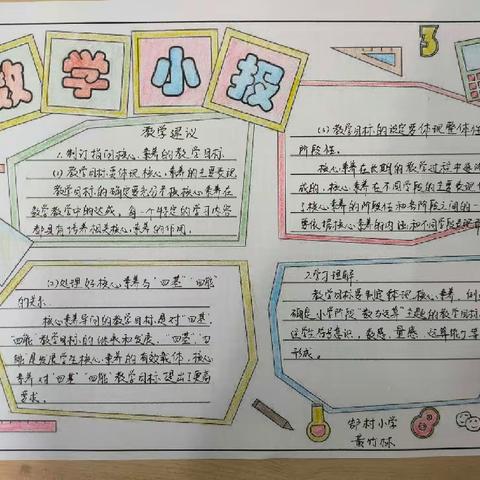 数学小报
3
教学建议
1.制订指向核心素养的教学目标
(1)教学目标要体现核心素养的主要表现
教学目标的确定要充分考核核心素养在
数学教学中的达成。每一个特定的学习内容
都具有培养相关核心素养的作用。
(2)处理好核心素养与“四基”“四能”
的关系
核心素养导向的教学目标是对“四基”
“四能”教学目标的继承和发展。“四基”“四
能”是发展学生核心素养的有效载体，核心
素养对“四基”“四能”教学目标提出了更高
要求。
(3)教学目标的设定要体现整体性
阶段性。
核心素养在长期的教学过程中逐
成的，核心素养在不同学段的主要表现
了核心素养的阶段性和各阶段之间的一
要依据核心素养的内涵和不同学段表现
2.学习理解
教学目标要制定体现核心素养，例
确定小学阶段“数与运算”主题的教学目标
这学 符号意识，数感、量感、运算能力等
形成。
舒村小学
黄竹林